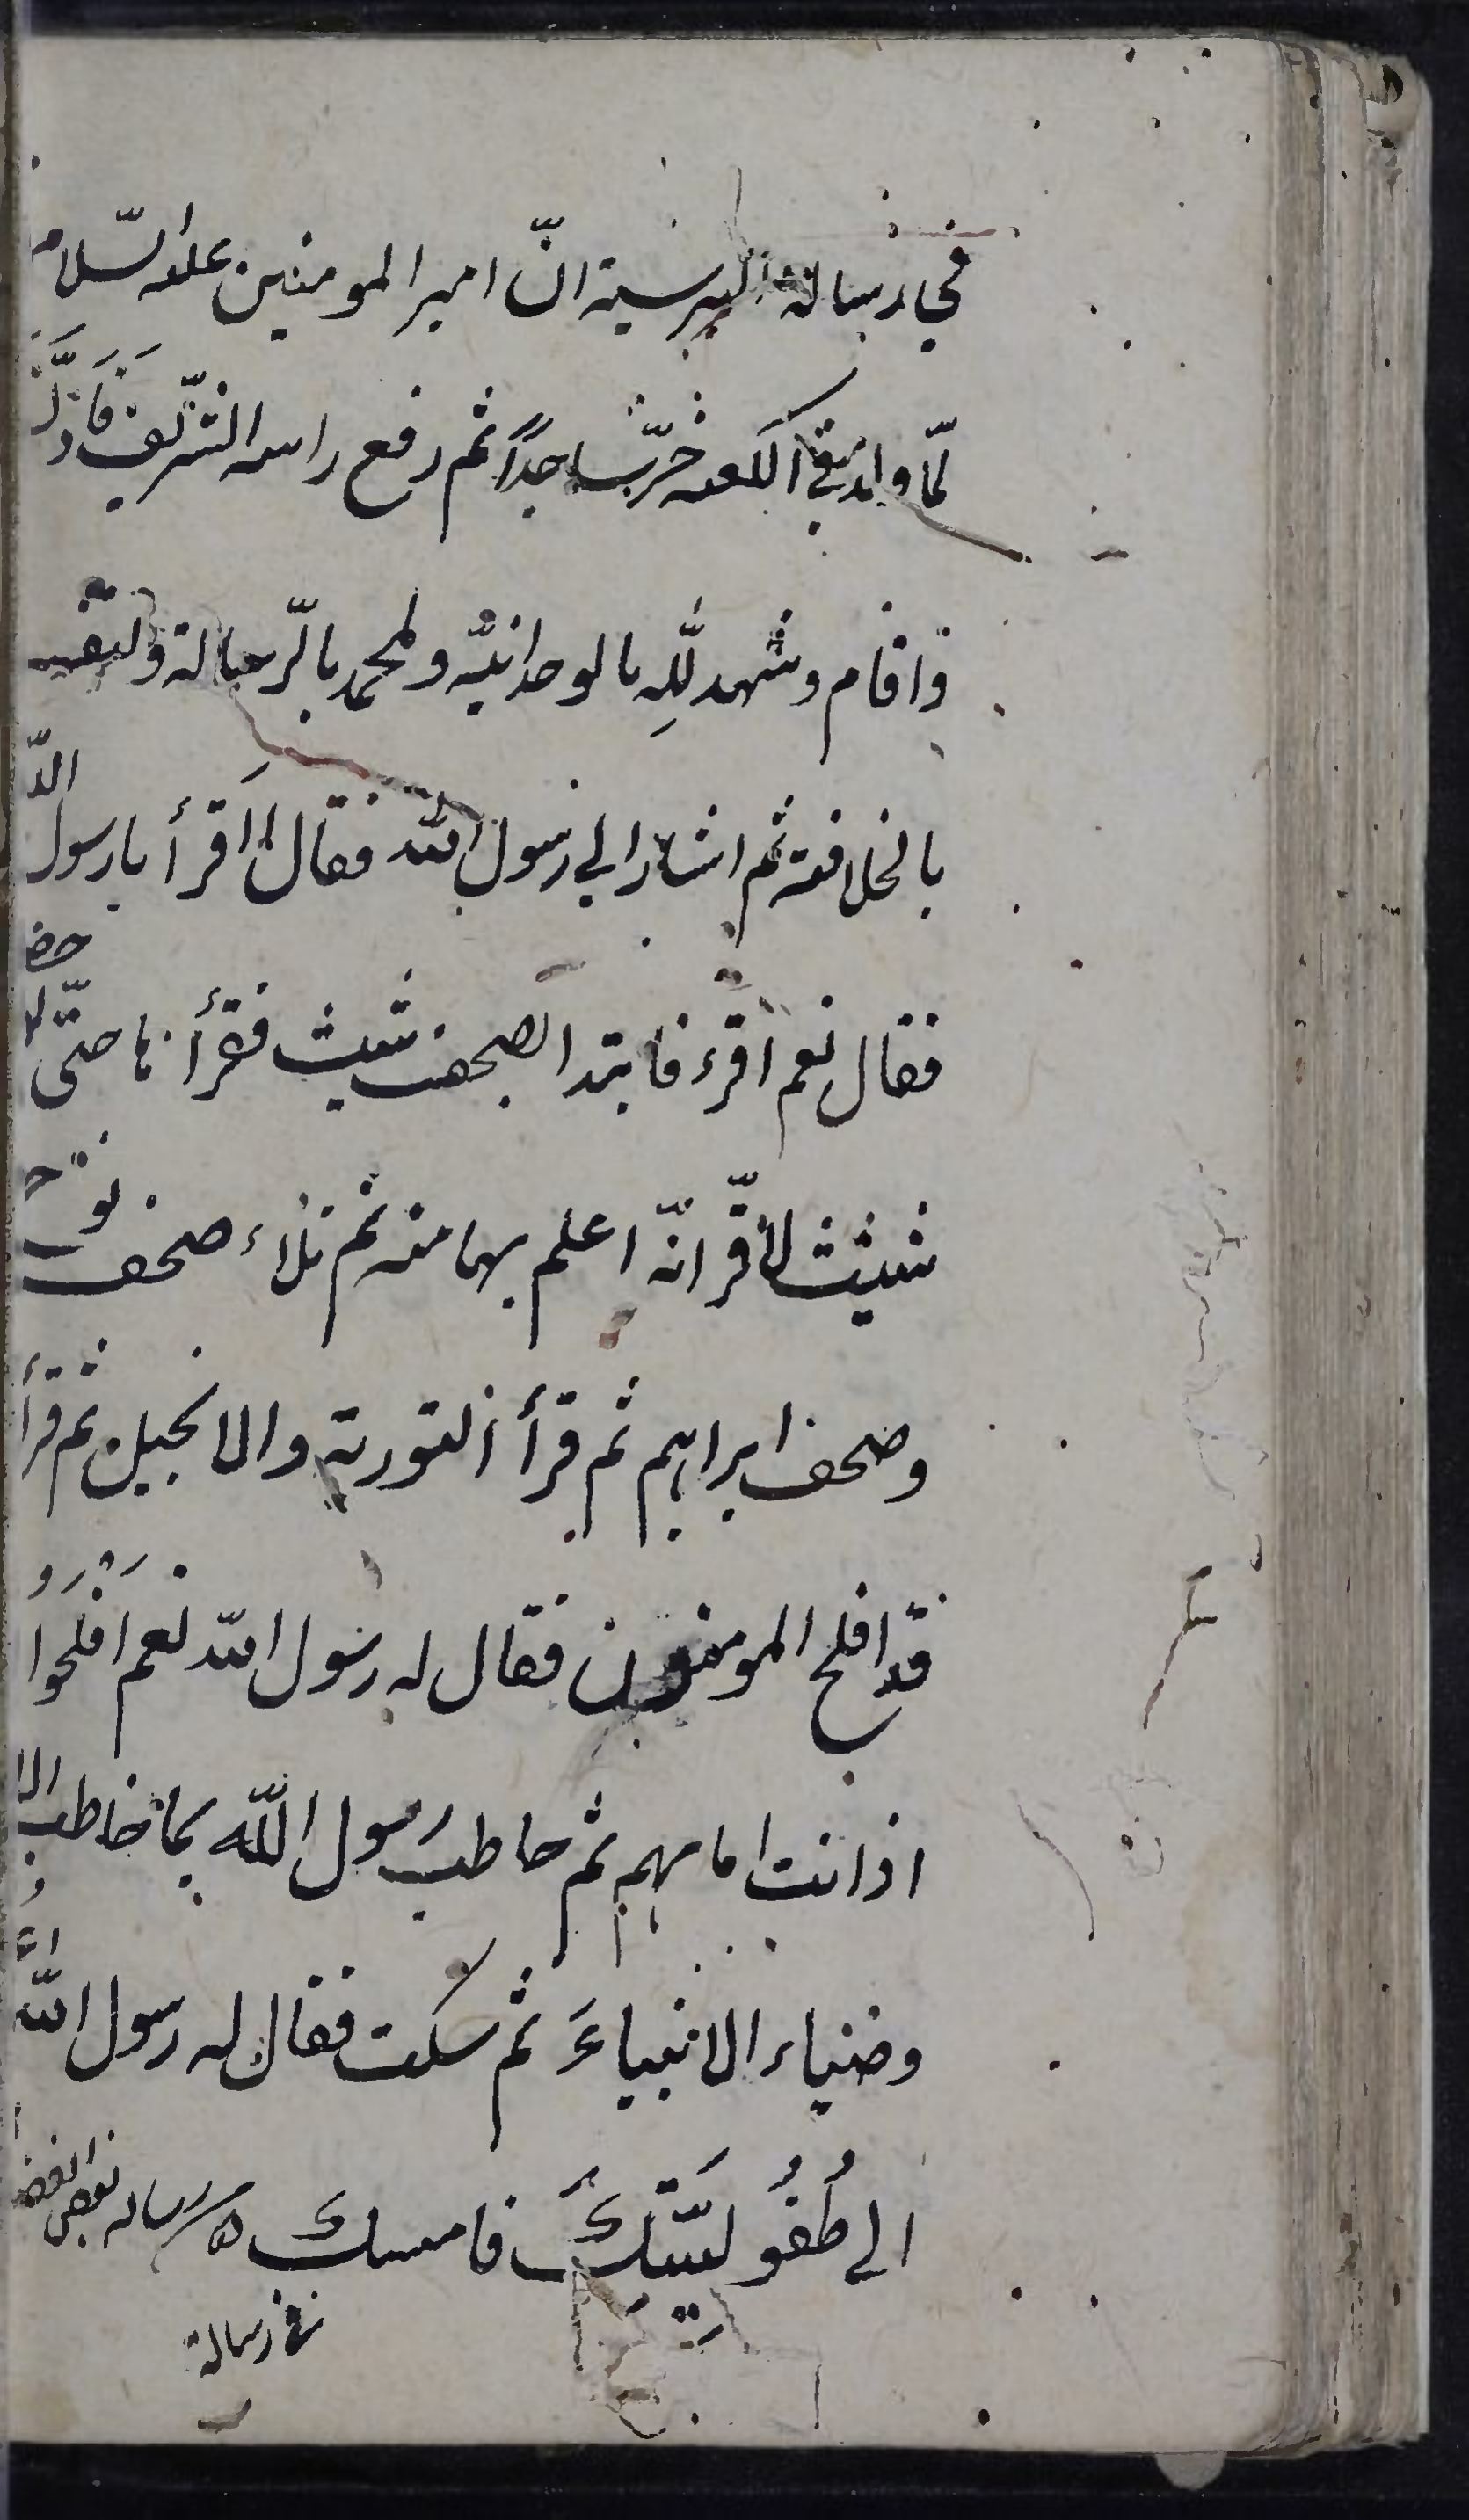 في رسالة البرسية انّ امير المومنين عليه السّلام
لمّا ولد في الكعبه خرّ ساجداً ثم رفع راسه الشّريف فَاَذَّنَ
وَاقام وشهد للّٰه بالوحدانيّه ولمحمد بالرّسالة ولنفسه
بالخلافة ثم اشار الي رسول الله فقال ااَقرأ يا رسول اللّه
فقال نعم اقرء فابتدا بصحف شيث فقرأ ها حتّى لو حضر
شيث لاقرّ انّه اعلم بها منه ثم تلاء صحف نوح
وصحف ابراهيم ثم قرأ التورية والانجيل ثم قرأ
قد افلح المومنون فقال له رسول الله نعم اَفْلَحُوا
اذ انت امامهم ثم خاطب رسول اللّه بما خاطب به الا
وضياء الانبياءَ ثم سكت فقال له رسول اللّه
الي طُفُوليّتكَ فامسكَ
رسالة